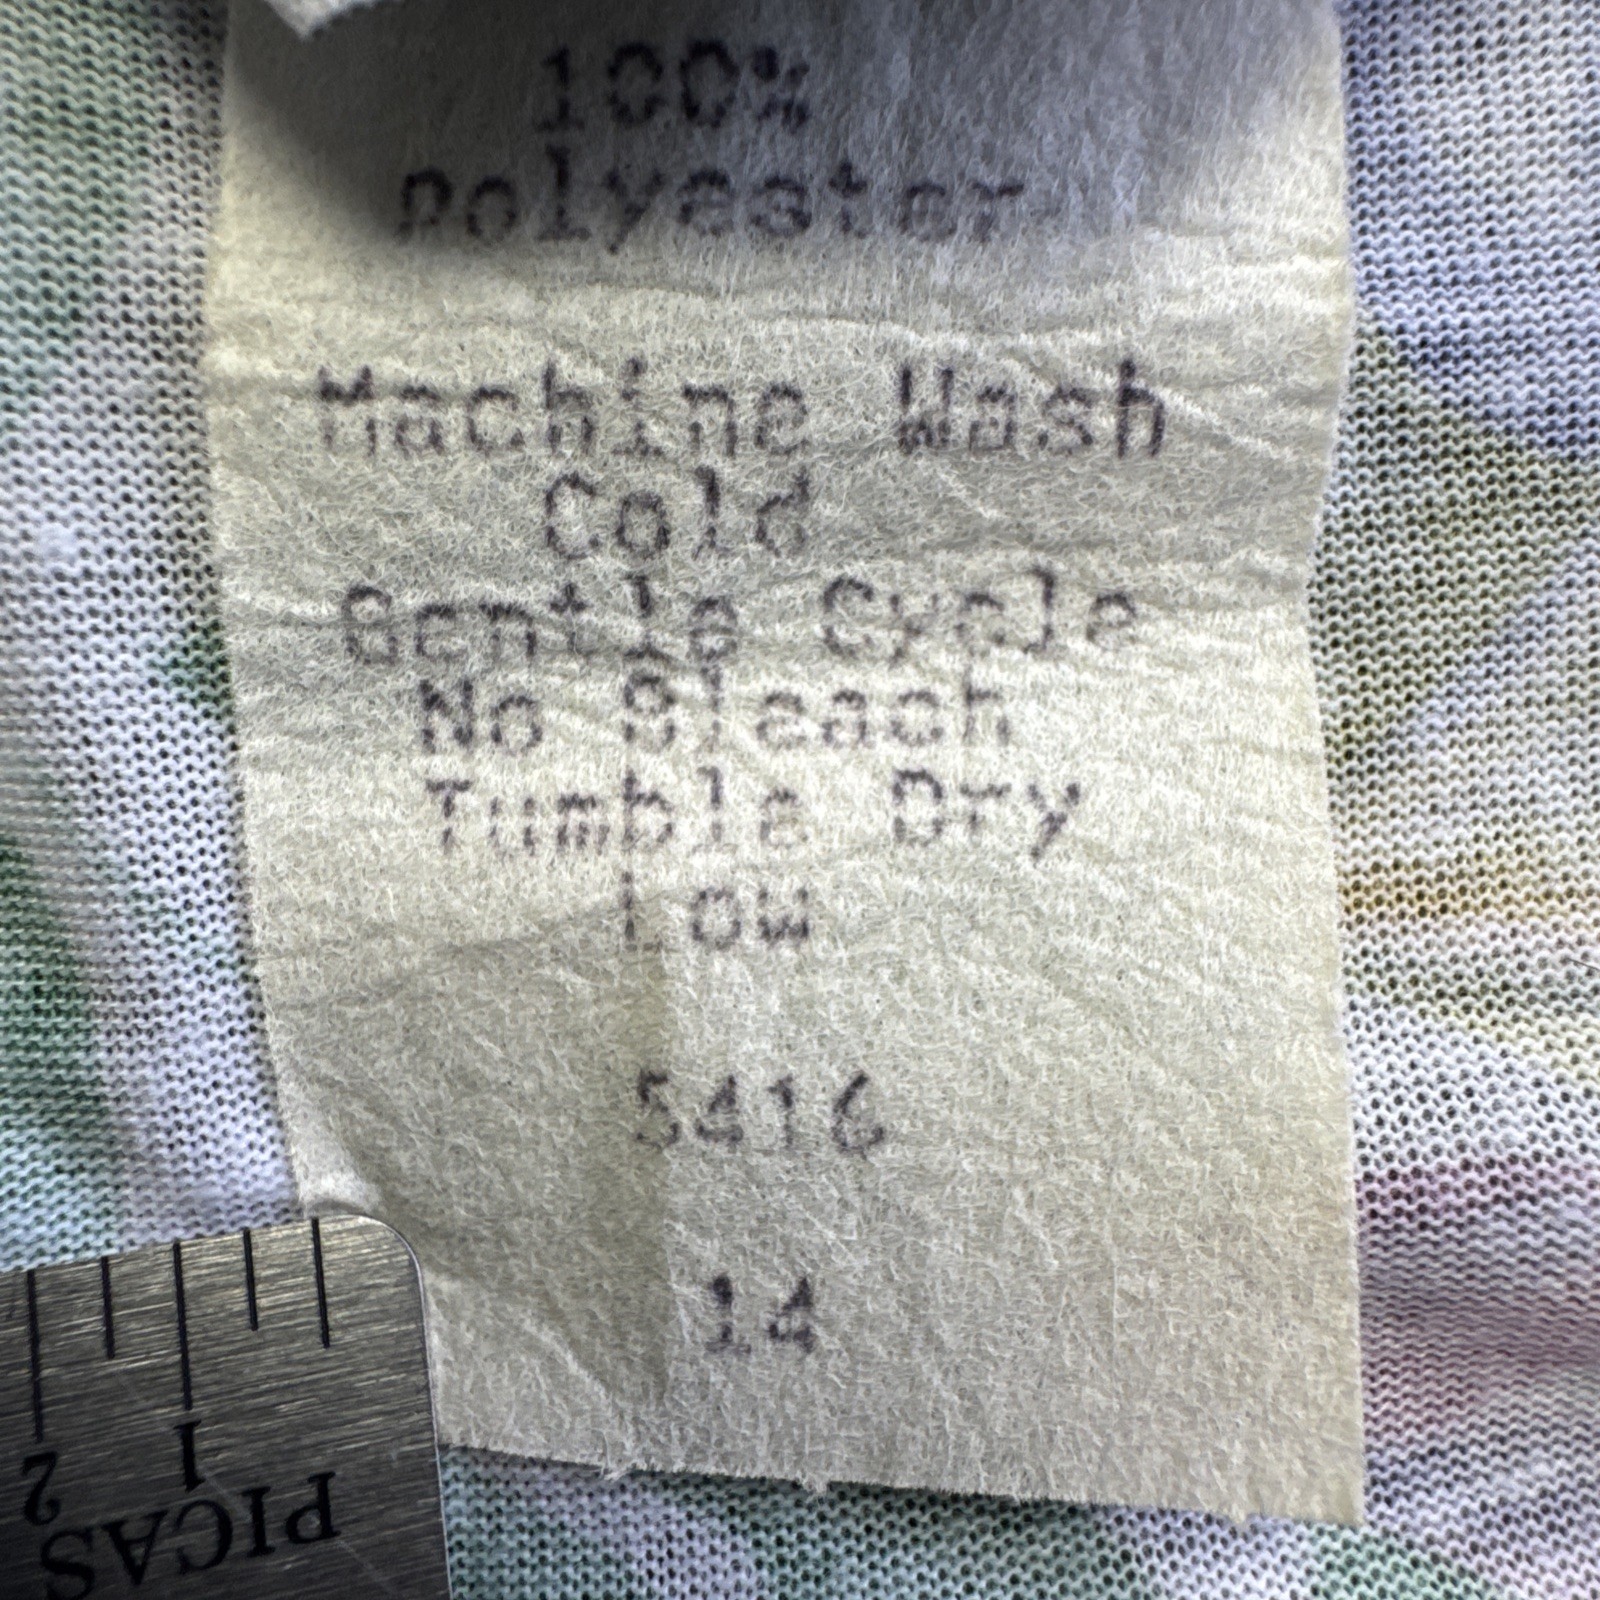 100%
polyester
Machine Wash
Cold
Gentle Cycle
No Bleach
Tumble Dry
Low
5416
14
1
2
PICAS